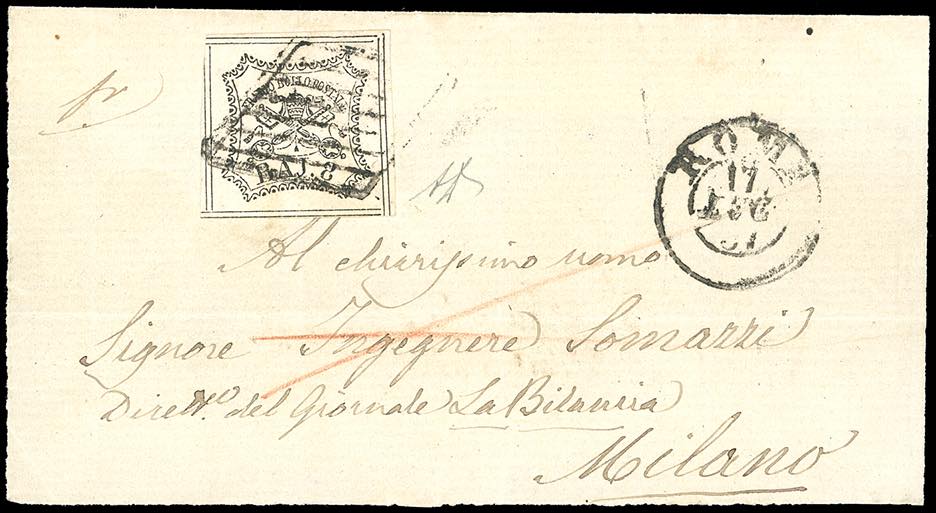 FRANCO BOLLO POSTALE
BAJ. 8
ROMA
17
LUG
57
Al chiarissimo uomo
Signore Ingegnere Somazzi
Dirett.º del Giornale La Bilancia
Milano